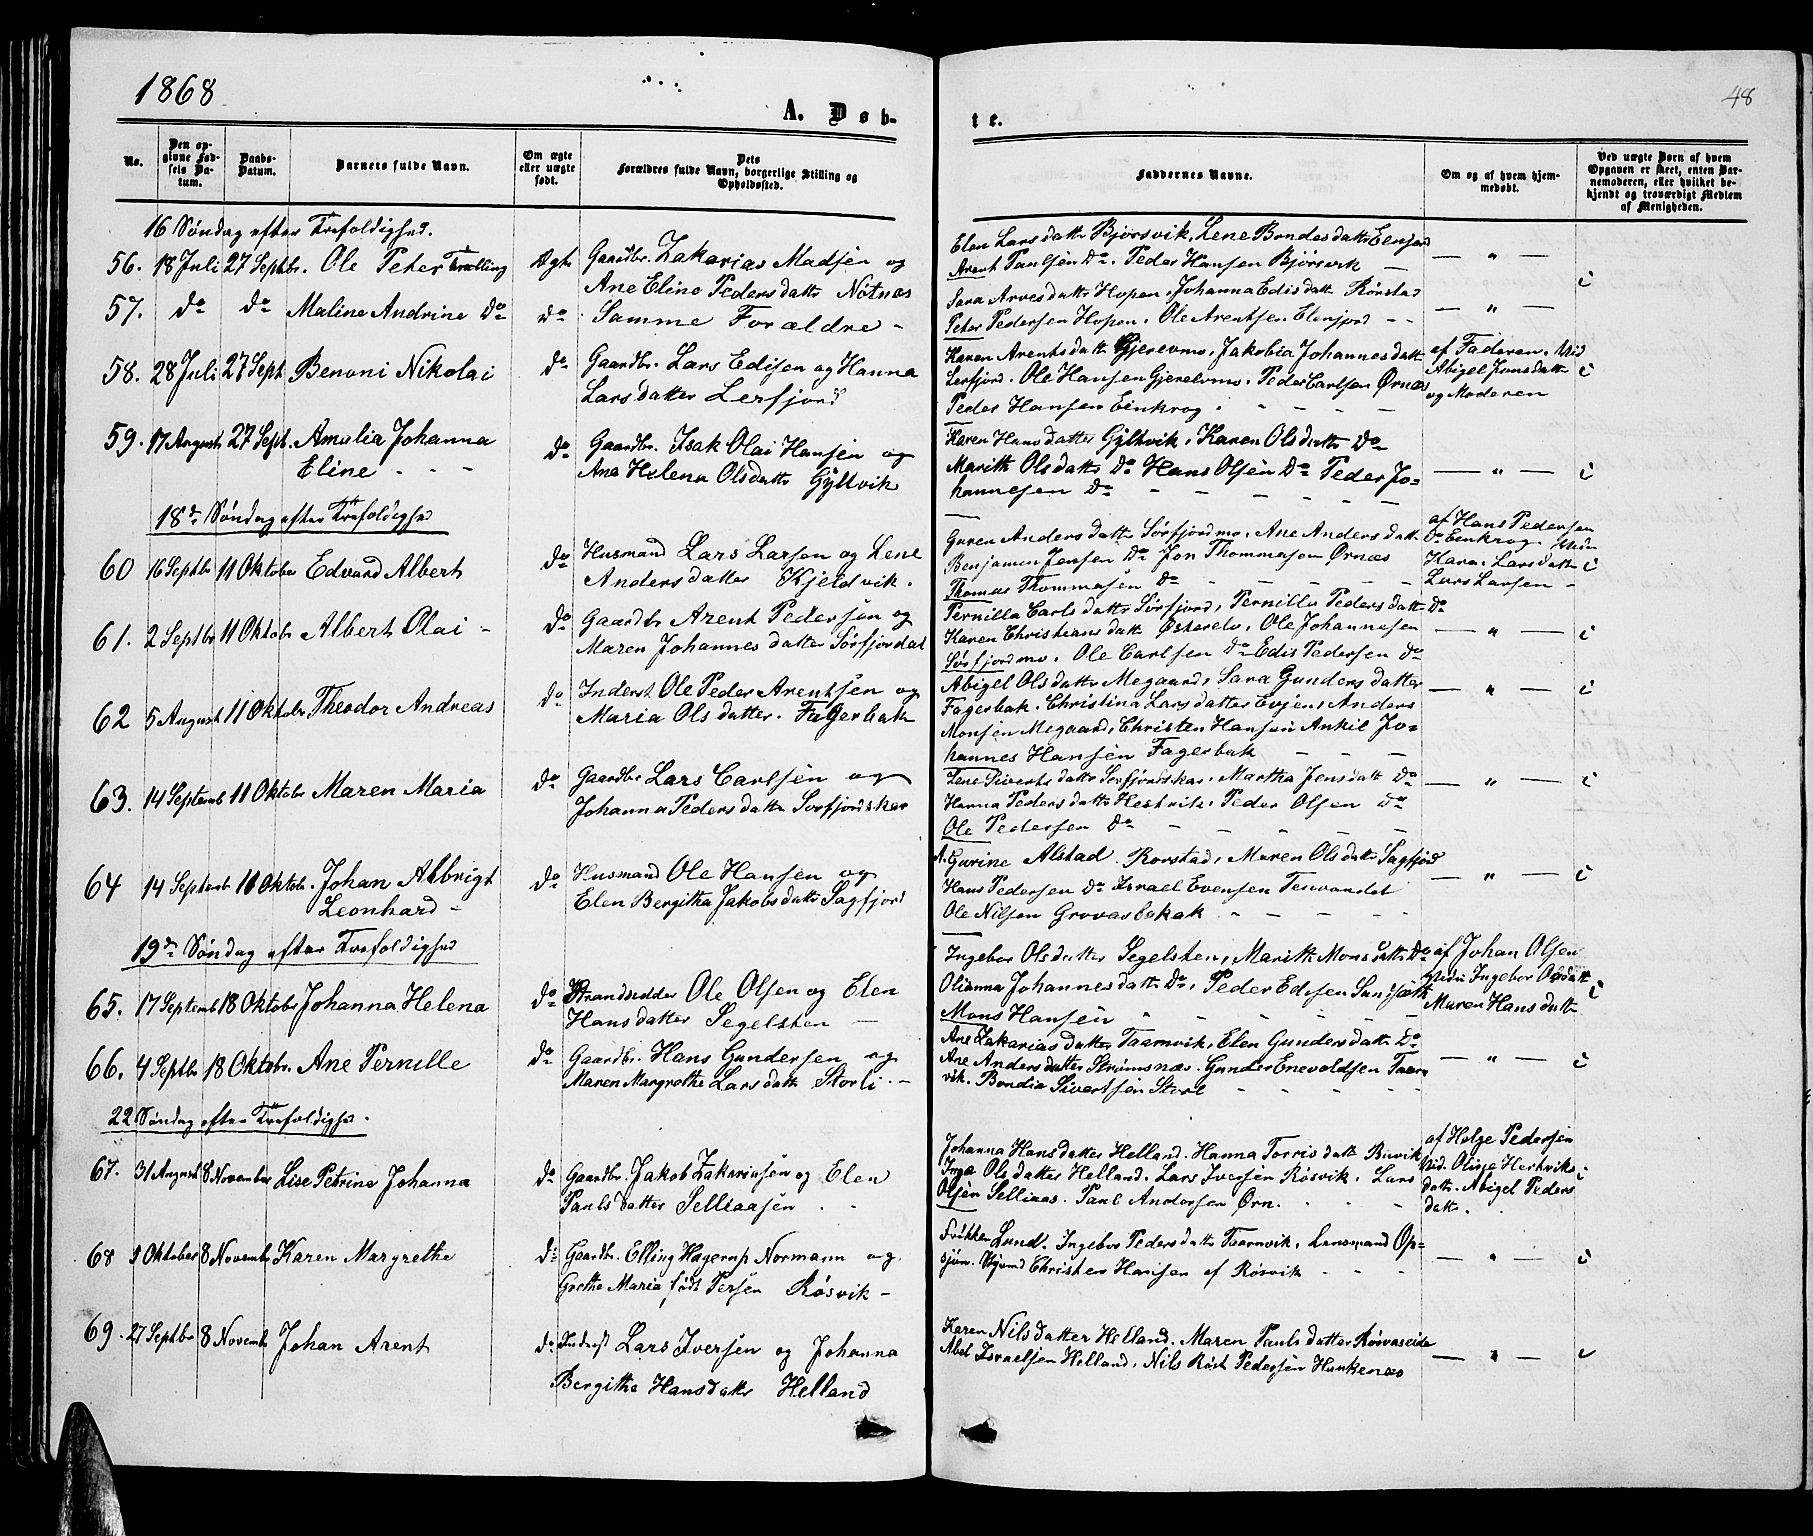 1868
48
A. Døb-
te.
No.
Den op-
givne Fød-
sels Da-
tum.
Daabs-
Datum.
Barnets fulde Navn.
Om ægte
eller uægte
født.
Dets
Forældres fulde Navn, borgerlige Stilling og
Opholdssted.
Faddernes Navne.
Om og af hvem hjem-
medøbt.
Ved uægte Børn af hvem
Opgaven er skeet, enten Bar-
nemoderen, eller hvilket be-
kjendt og troværdigt Medlem
af Menigheden.
16 Søndag efter Trefoldighed.
56. 18 Juli 27 Septbr. Ole Peter Tvelling Ægt. Gaardbr. Zakarias Madsen og
Ane Eline Pedersdatter Nøtnæs
Elen Larsdatter Bjørsvik, Lene Bendesdatter
Arent Paulsen Do. Peder Hansen Bjørsvik — " — i
57. do do Maline Andrine Do do Samme Forældre -
Sara Arvesdatter Hopen, Johanna Edisdatt Rørstad
Peter Pedersen Hopen, Ole Arentsen Elenfjord - - — " —
58. 28 Juli 27 Sept. Benoni Nikolai do Gaardbr. Lars Edisen og Hanna
Larsdatter Lerfjord
Karen Arentsdatt Gjerelvmo, Jakobia Johannesdatt
Lerfjord. Ole Hansen Gjerelvmo, Peder Carlsen Ørnæs
Peder Hansen Eenkrog
af Faderen, Vid
Abigel Jensdatt
og Moderen i
59. 17 August 27 Sept. Amalia Johanna
Eline - - -
do Gaardbr. Isak Olai Hansen og
Ane Helena Olsdatter Gyltvik
Karen Hansdatter Gyltvik, Karen Olsdatter Do
Marith Olsdatter Do Hans Olsen Do Peder Jo-
hannesen Do - - - - - - — " — i
18de Søndag efter Trefoldighed
60 16 Septbr 11 Oktober Edvard Albert do Husmand Lars Larsen og Lene
Andersdatter Kjeldvik.
Guren Andersdatt Sørfjordmo, Ane Andersdatt
Benjamen Jensen Do Jon Thommasen Ørnæs
Thomas Thommasen Do
af Hans Pedersen
Eenkrog
Kara Larsdatter i
Lars Larsen -
61. 2 Septbr 11 Oktobr Albert Olai - do Gaardbr Arent Pedersen og
Maren Johannesdatter Sørfjordal
Pernilla Carlsdatter Sørfjord, Pernilla Pedersdatter Do
Karen Christiansdatt Østerelv, Ole Johannesen
Sørfjordmo, Ole Carlsen Do Edis Pedersen Do — " — i
62 5 August 11 Oktober Theodor Andreas do Inderst Ole Peder Arentsen og
Maria Olsdatter. Fagerbak
Abigel Olsdatter Megaard, Sara Gundersdatter
Fagerbak, Christina Larsdatter Evjen, Anders
Monsen Megaard, Christen Hansen Ankil Jo-
hannes Hansen Fagerbak - - - — " — i
63. 14 Septemb 11 Oktobr Maren Maria do Gaardbr. Lars Carlsen og
Johanna Pedersdatter Sørfjordskar
Lene Sivertsdatter Sørfjordskar, Martha Jensdatt Do
Hanna Pedersdatter Hestvik, Peder Olsen Do
Ole Pedersen Do - - - - - — " — i
64 14 Septembr 11 Oktob. Johan Albrigt
Leonhard -
do Husmand Ole Hansen og
Elen Bergitha Jakobsdatter Sagfjord
A. Gurine Alstad Rørstad, Maren Olsdatt Sagfjord
Hans Pedersen Do Israel Evensen Tenvandet
Ole Nilsen Grovasbakak - - - - — " — i
19de Søndag efter Trefoldighed
65. 17 Septemb 18 Oktober Johanna Helena do Strandsidder Ole Olsen og Elen
Hansdatter Segelsten -
Ingebor Olsdatter Segelsten, Marith Monsdatter Do
Olianna Johannesdatt Do, Peder Edisen Sundsæth
Mons Hansen
af Johan Olsen
Vidn Ingebor Olsdatt
Maren Hansdatt i
66. 4 Septbr 18 Oktobr. Ane Pernille do Gaardbr. Hans Gundersen og
Maren Margrethe Larsdatt Storli -
Ane Zakariasdatter Taarnvik, Elen Gundersdatt Do
Ane Andersdatter Strømsnæs. Gunder Enevoldsen Taarn
vik. Bondia Sivertsen Storl — " — i
22 Søndag efter Trefoldighed.
67. 31 August 8 November Lise Petrine Johanna do Gaardbr. Jakob Zakariasen og Elen
Paulsdatter Selliaasen
Johanna Hansdatter Helland. Hanna Torrisdatt Buvik
Inga Olsdatter Helland. Lars Iversen Røsvik. Lars
Olsen Selliaas. Paul Andersen Ørn.
af Helge Pedersen
Vid. Oline Hestvik i
datt. Abigel Peders
datt.
68 1 Oktober 8 Novembr Karen Margrethe do Gaardbr. Elling Hagerup Normann og
Grethe Maria født Persen Røsvik -
Frøkken Lund. Ingebor Pedersdatter Taarnvik, Lensmand Op-
sjøn. Christen Hansen af Røsvik - - - — " — i
69. 27 Septbr 8 Novemb Johan Arent do Inderst Lars Iversen og Johanna
Bergitha Hansdatter Helland
Karen Nilsdatter Helland. Maren Paulsdatter Røsvaseide
Abel Israelsen Helland, Nils Røst Pedersen Hunkenæs — " — i